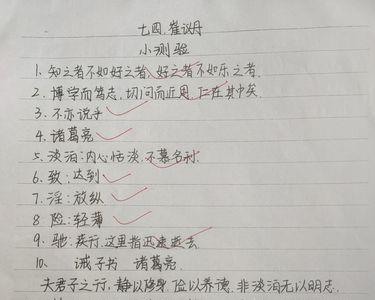 七四.崔议丹
小测验
1. 知之者不如好之者,好之者不如乐之者.
2. 博学而笃志,切问而近思,仁在其中矣.
3. 不亦说乎
4. 诸葛亮
5. 淡泊:内心恬淡,不慕名利.
6. 致:达到
7. 淫:放纵
8 险:轻薄
9. 驰:疾行,这里指迅速逝去.
10. 诫子书 诸葛亮.
夫君子之行,静以修身,俭以养德.非淡泊无以明志.